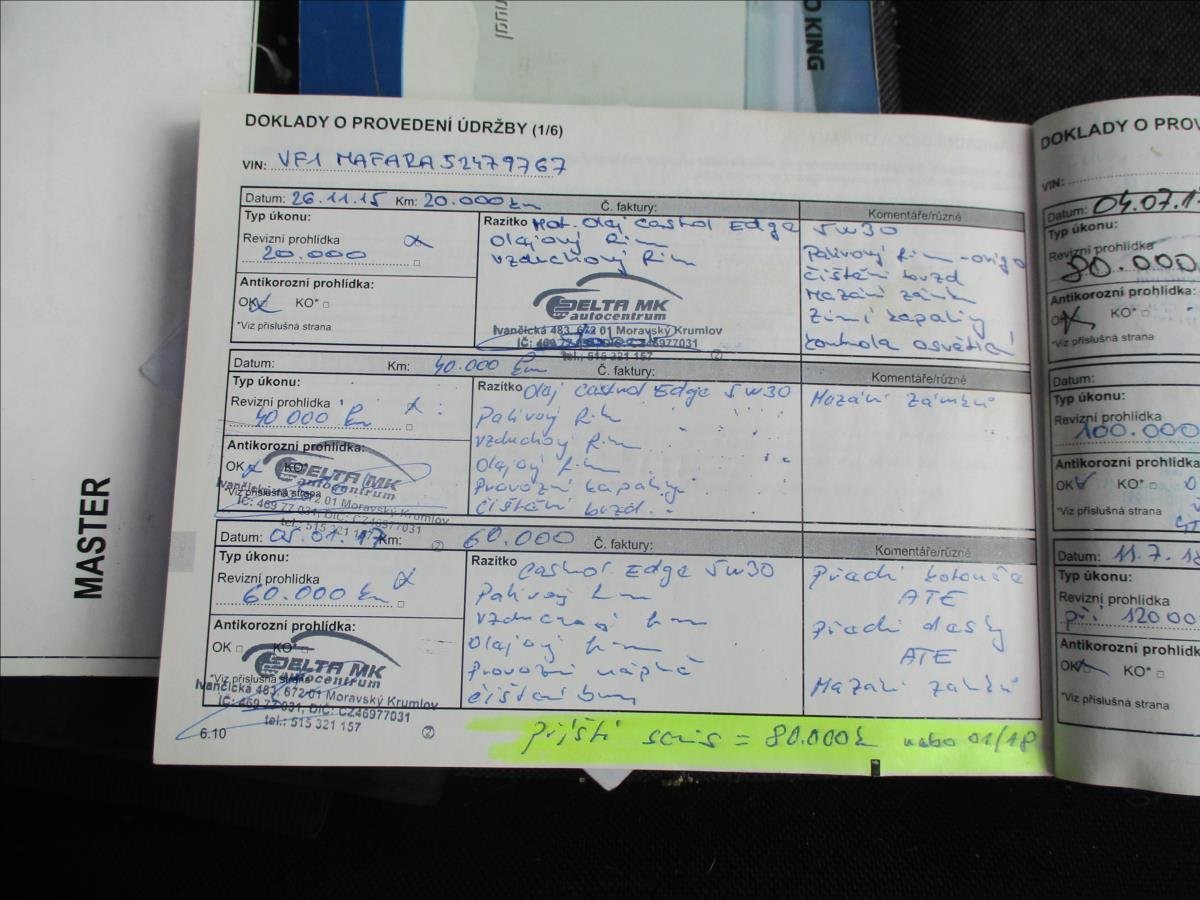 O KING
MASTER
DOKLADY O PROVEDENÍ ÚDRŽBY (1/6)
VIN: VF1 MAFARA52479767
Datum: 26.11.15 Km: 20.000 km Č. faktury: Komentáře/různé
Typ úkonu:
Revizní prohlídka
20.000
Antikorozní prohlídka:
OK KO*
*Viz příslušná strana
Razítko Mot. Olej Castrol Edge 5W30
Olejový
Vzduchový
DELTA MK
autocentrum
Ivančická 483, 672 01 Moravský Krumlov
tel.: 515 321 157
Palivový
čištění brzd
Mazání zámků
Zimní kapaliny
kontrola osvětlení
Datum: Km: 40.000 km Č. faktury: Komentáře/různé
Typ úkonu:
Revizní prohlídka
40 000 km
Antikorozní prohlídka:
OK KO*
*Viz příslušná strana
DELTA MK
autocentrum
Ivančická 483, 672 01 Moravský Krumlov
IČ: 469 77 031, DIČ: CZ46977031
tel.: 515 321 157
Razítko Olej Castrol Edge 5W30
Palivový
Vzduchový
Olejový
Provozní kapaliny
čištění brzd
Mazání zámků
Datum: 05.01.17 Km: 60.000 Č. faktury: Komentáře/různé
Typ úkonu:
Revizní prohlídka
60.000 km
Antikorozní prohlídka:
OK KO*
*Viz příslušná strana
DELTA MK
autocentrum
Ivančická 483, 672 01 Moravský Krumlov
IČ: 469 77 031, DIČ: CZ46977031
tel.: 515 321 157
Razítko
Castrol Edge 5W30
Palivový
Vzduchový
Olejový
Provozní náplně
čištění
Přední kotouče
ATE
Přední desky
ATE
Mazání zámků
6.10
příští servis = 80.000 nebo 01/18
DOKLADY O PROV
VIN:
Datum: 04.07.1
Typ úkonu:
Revizní prohlídka
80.000
Antikorozní prohlídka
OK KO*
*Viz příslušná strana
Datum:
Typ úkonu:
Revizní prohlídka
100.000
Antikorozní prohlídka
OK KO*
*Viz příslušná strana
Datum: 11.7.18
Typ úkonu:
Revizní prohlídka
při 12000
Antikorozní prohlídka
OK KO*
*Viz příslušná strana